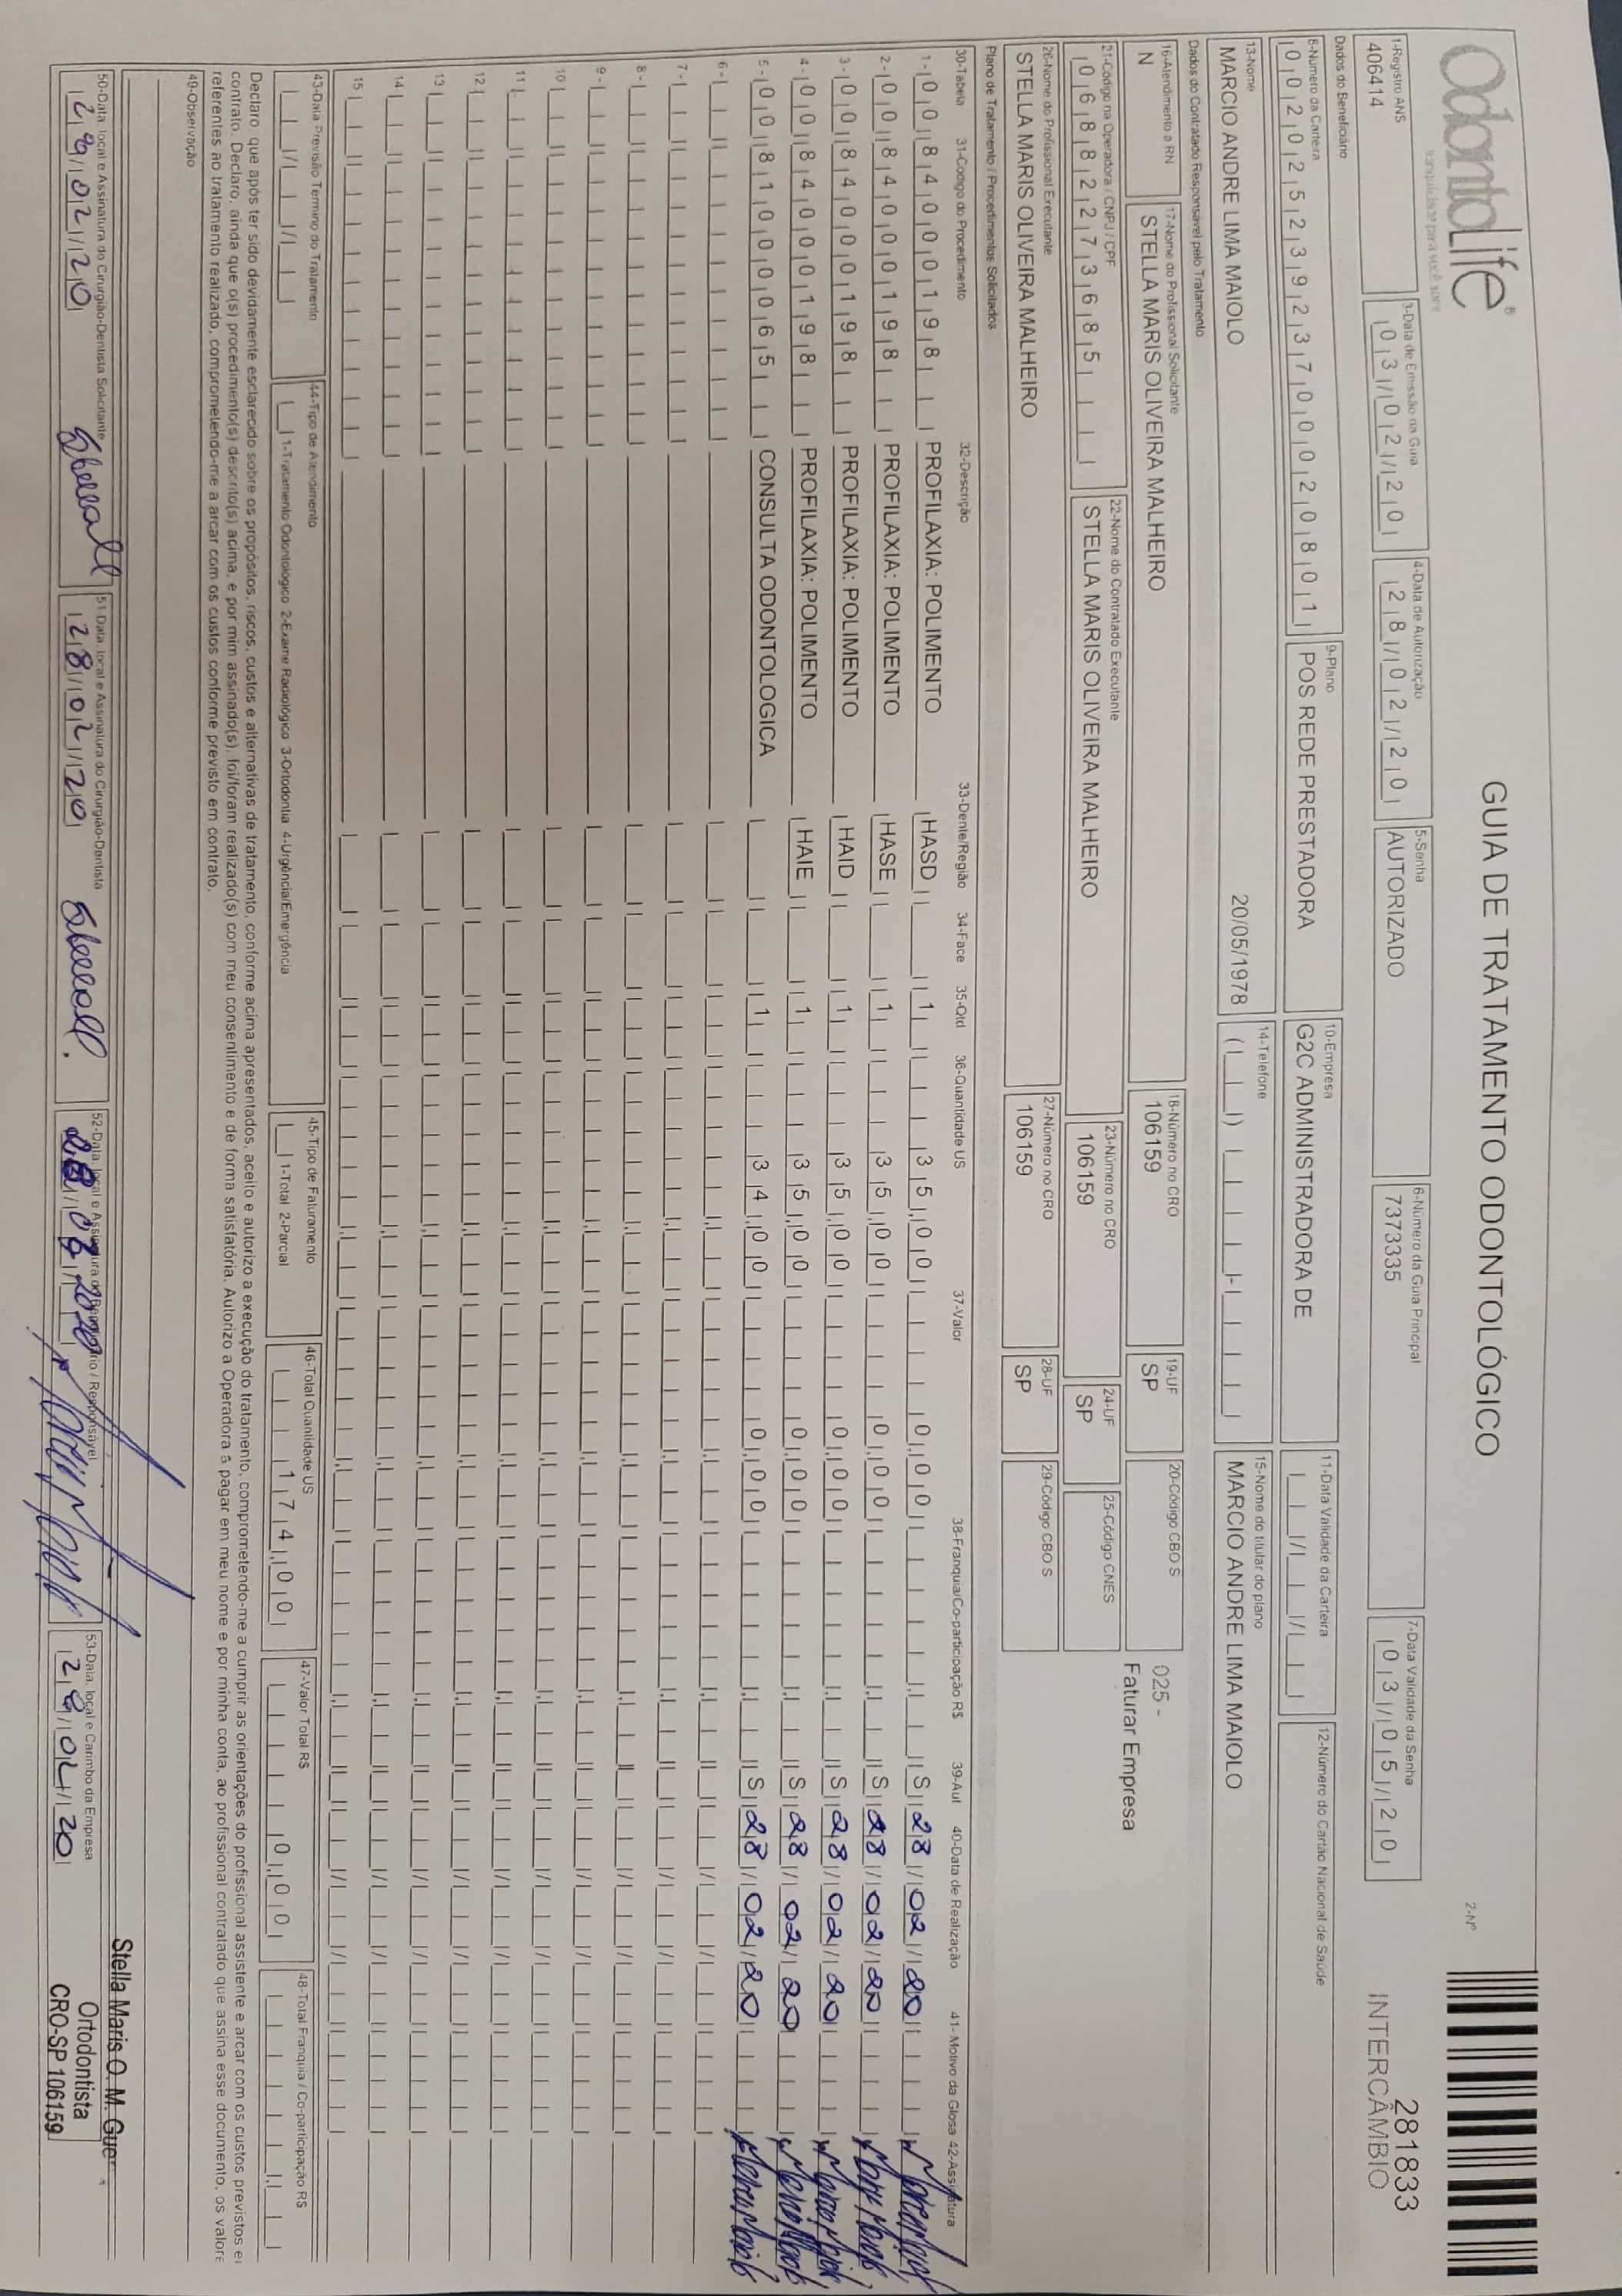 OdontoLife®
GUIA DE TRATAMENTO ODONTOLÓGICO
2-Nº
281833
INTERCÂMBIO
1-Registro ANS
406414
3-Data de Emissão da Guia
03/02/20
4-Data de Autorização
28/02/20
5-Senha
AUTORIZADO
6-Número da Guia Principal
7373335
7-Data Validade da Senha
03/05/20
Dados do Beneficiário
8-Número da Carteira
00202523923700020801
9-Plano
POS REDE PRESTADORA
10-Empresa
G2C ADMINISTRADORA DE
11-Data Validade da Carteira
12-Número do Cartão Nacional de Saúde
13-Nome
MARCIO ANDRE LIMA MAIOLO
20/05/1978
14-Telefone
15-Nome do titular do plano
MARCIO ANDRE LIMA MAIOLO
Dados do Contratado Responsável pelo Tratamento
16-Atendimento a RN
N
17-Nome do Profissional Solicitante
STELLA MARIS OLIVEIRA MALHEIRO
18-Número no CRO
106159
19-UF
SP
20-Código CBO S
025 -
Faturar Empresa
21-Código na Operadora / CNPJ / CPF
06882273685
22-Nome do Contratado Executante
STELLA MARIS OLIVEIRA MALHEIRO
23-Número no CRO
106159
24-UF
SP
25-Código CNES
26-Nome do Profissional Executante
STELLA MARIS OLIVEIRA MALHEIRO
27-Número no CRO
106159
28-UF
SP
29-Código CBO S
Plano de Tratamento / Procedimentos Solicitados
30-Tabela 31-Código do Procedimento 32-Descrição 33-Dente/Região 34-Face 35-Qtd 36-Quantidade US 37-Valor 38-Franquia/Co-participação R$ 39-Aut 40-Data de Realização 41- Motivo da Glosa 42-Assinatura
1- 00 84000198 PROFILAXIA: POLIMENTO HASD 1 35,00 0,00 S 28/02/20
2- 00 84000198 PROFILAXIA: POLIMENTO HASE 1 35,00 0,00 S 28/02/20
3- 00 84000198 PROFILAXIA: POLIMENTO HAID 1 35,00 0,00 S 28/02/20
4- 00 84000198 PROFILAXIA: POLIMENTO HAIE 1 35,00 0,00 S 28/02/20
5- 00 81000065 CONSULTA ODONTOLOGICA 1 34,00 0,00 S 28/02/20
6-
7-
8-
9-
10
11
12
13
14
15
43-Data Previsão Termino do Tratamento
44-Tipo de Atendimento
1-Tratamento Odontológico 2-Exame Radiológico 3-Ortodontia 4-Urgência/Emergência
45-Tipo de Faturamento
1-Total 2-Parcial
46-Total Quantidade US
174,00
47-Valor Total R$
0,00
48-Total Franquia / Co-participação R$
Declaro, que após ter sido devidamente esclarecido sobre os propósitos, riscos, custos e alternativas de tratamento, conforme acima apresentados, aceito e autorizo a execução do tratamento, comprometendo-me a cumprir as orientações do profissional assistente e arcar com os custos previstos e
contrato. Declaro, ainda que o(s) procedimento(s) descrito(s) acima, e por mim assinado(s), foi/foram realizado(s) com meu consentimento e de forma satisfatória. Autorizo a Operadora à pagar em meu nome e por minha conta, ao profissional contratado que assina esse documento, os valore
referentes ao tratamento realizado, comprometendo-me a arcar com os custos conforme previsto em contrato.
49-Observação
50-Data, local e Assinatura do Cirurgião-Dentista Solicitante
28/02/20
51-Data, local e Assinatura do Cirurgião-Dentista
28/02/20
52-Data, local e Assinatura do Beneficiário / Responsável
53-Data, local e Carimbo da Empresa
28/02/20
Stella Maris O. M. Guer
Ortodontista
CRO-SP 106159